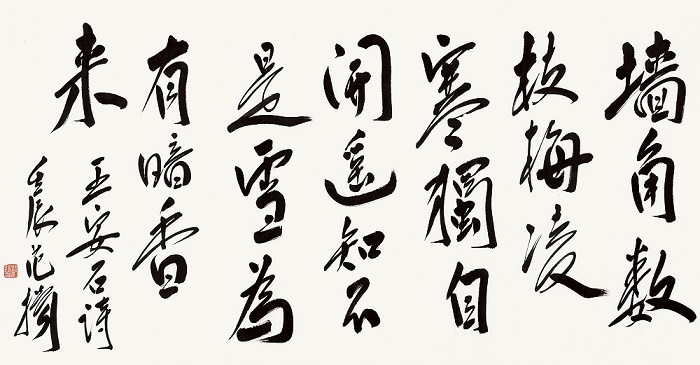 墙角数
枝梅凌
寒獨自
開遥知不
是雪為
有暗香
来
王安石诗
壬辰范